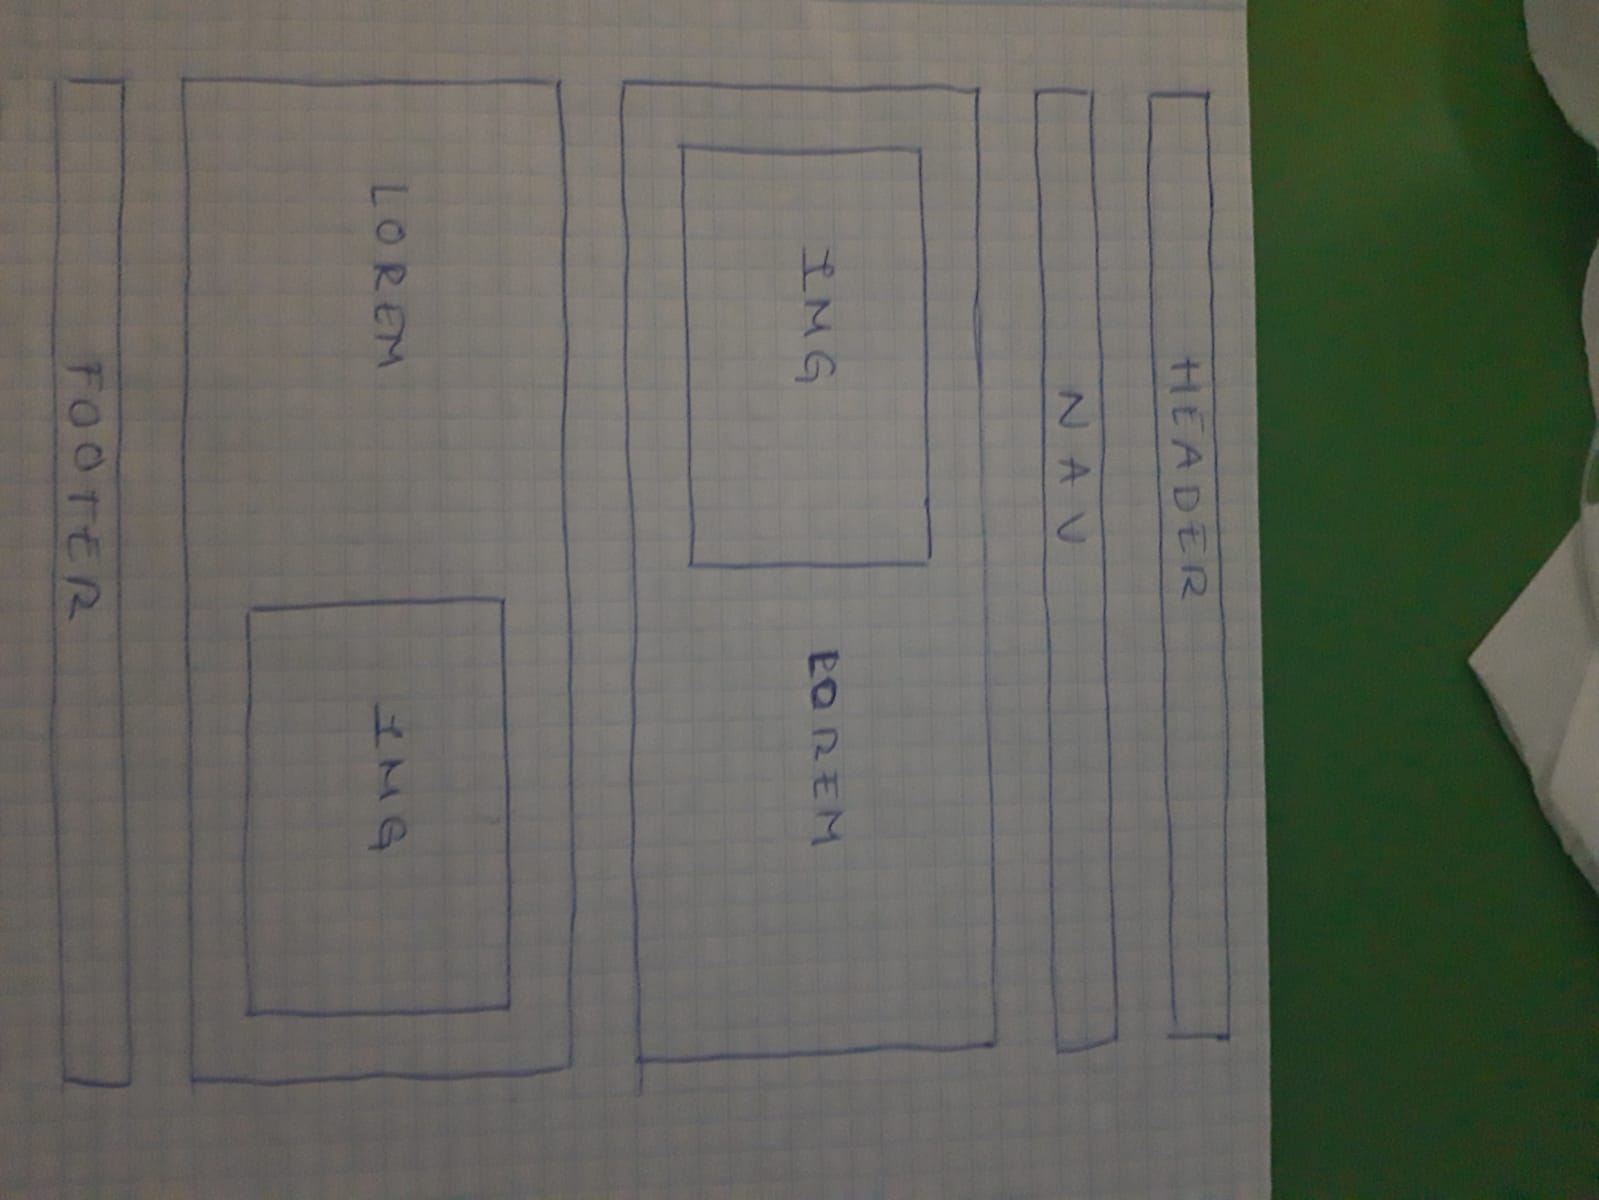 HEADER
NAV
IMG LOREM
LOREM IMG
FOOTER